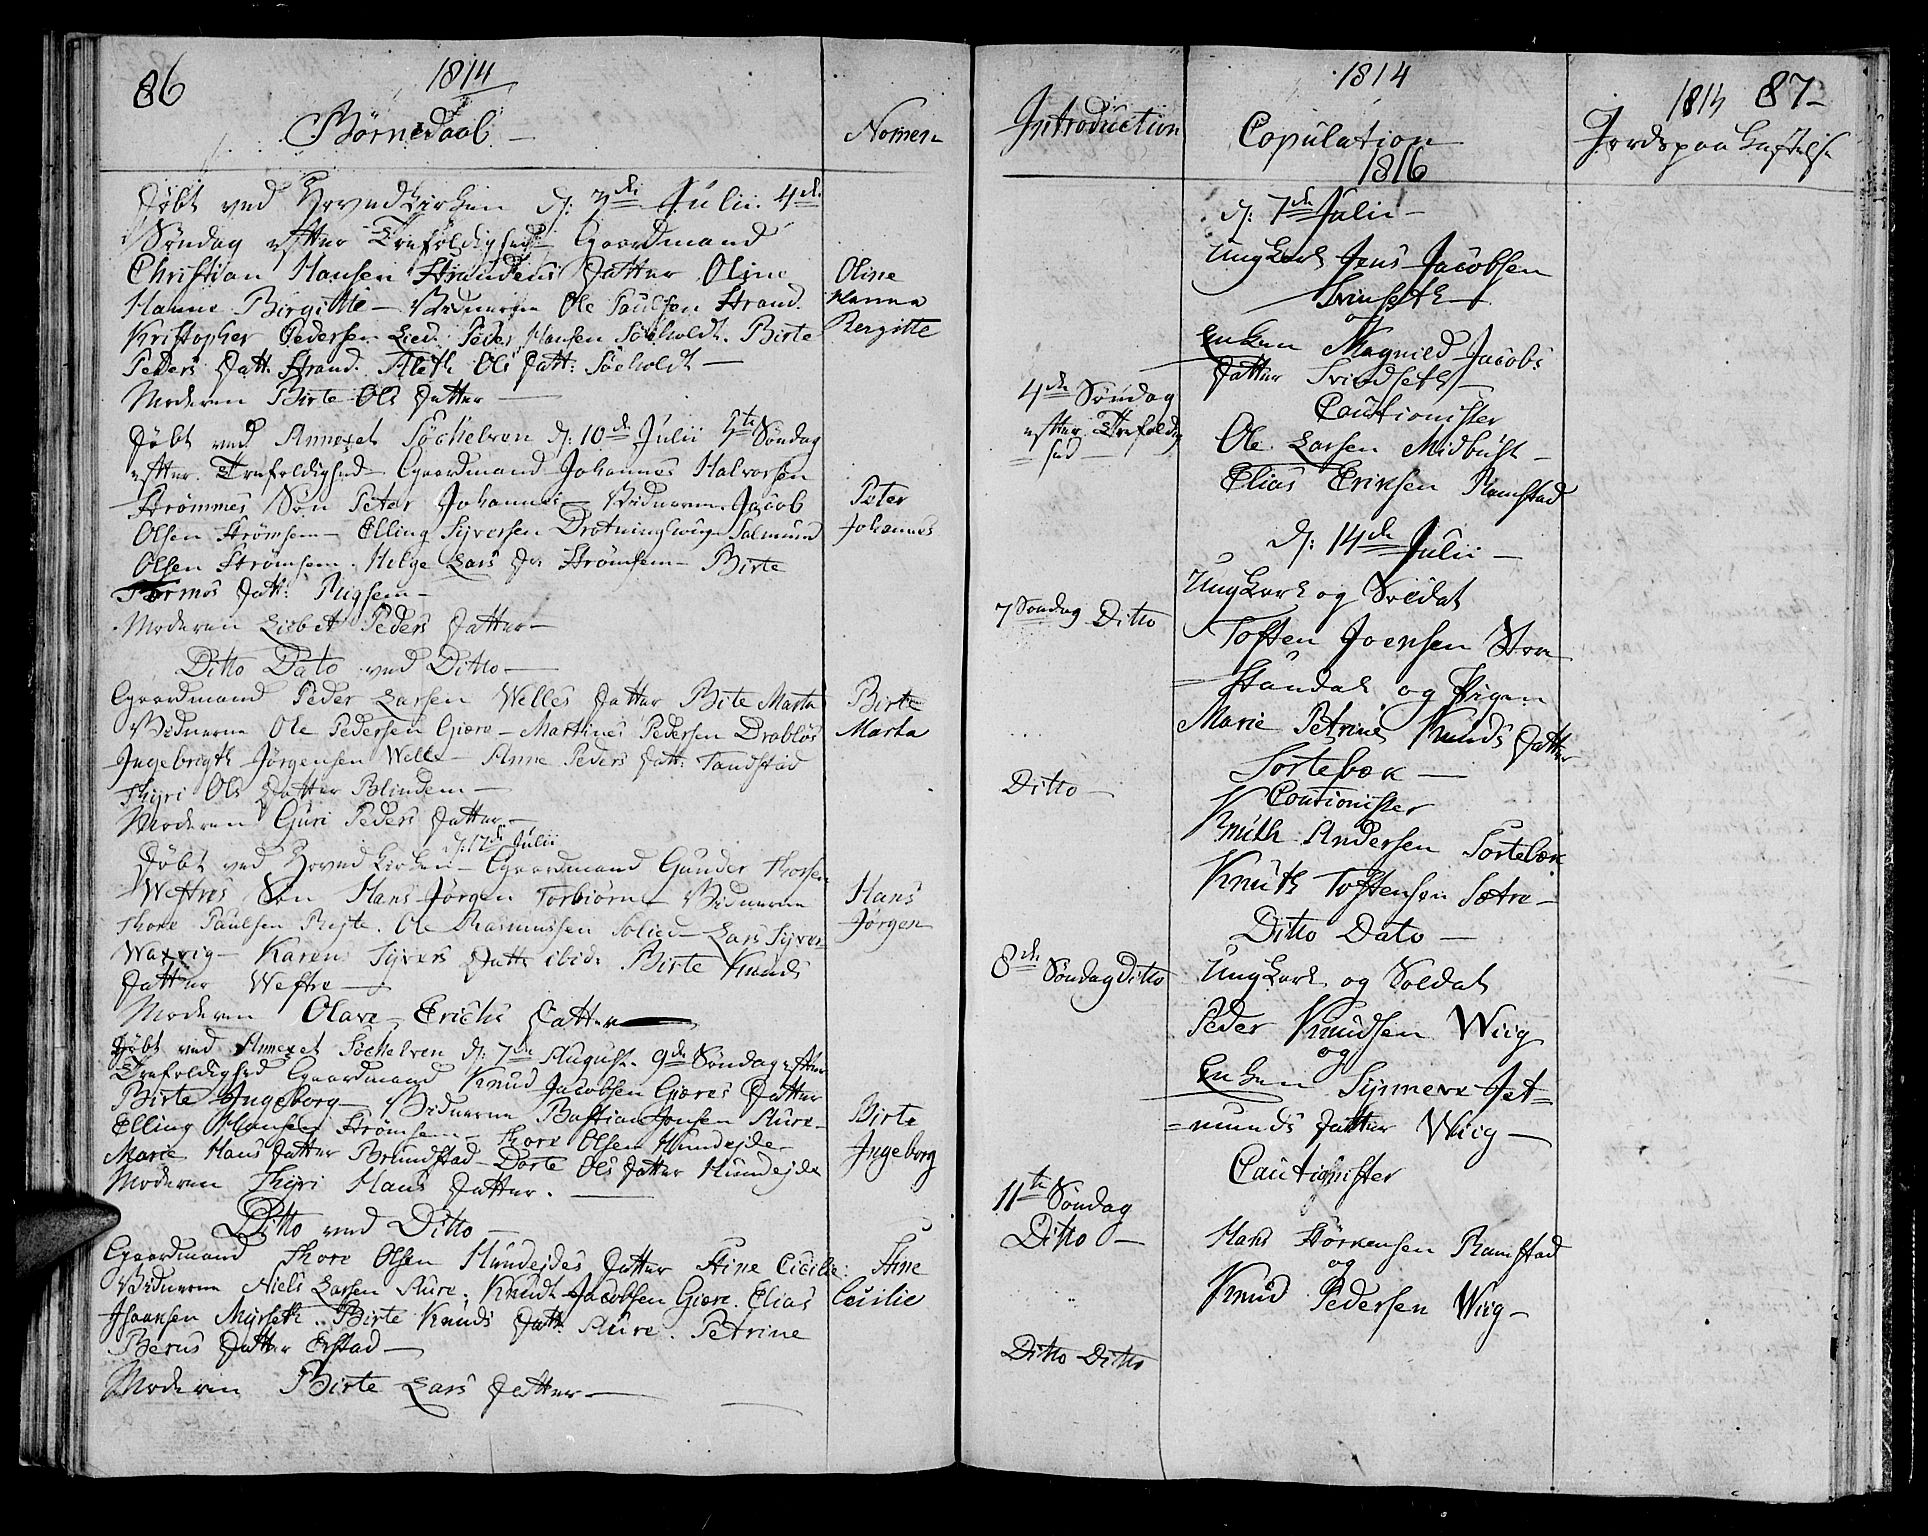 86
1814
Børnedaab
Nomen
Døbt ved Hovedkirken d: 3de Julii 4de
Søndag efter Trefoldighed Gaardmand
Christian Hansen Strandens Datter Oline
Hanne Birgitte — Vidnerne Ole Paulsen Strand.
Kristopher Pedersen Lied. Peder Hansen Søeholdt. Birte
Peders Datt. Strand. Aleth Ols Datt: Søeholdt —
Moderen Birte Ols Datter —
Oline
Hanna
Bergitte
Døbt ved Annexet Søchelven d: 10de Julii 5te Søndag
efter Trefoldighed Gaardmand Johannes Halvorsen
Strømmes Søn Peter Johannes — Vidnerne Jacob
Olsen Strømsem — Elling Sjversen Drotningwug Salmund
Olsen Strømsem. Helge Lars Dr Strømsem — Birte
Tormos Datt: Rigsem —
Moderen Lisbet Peders Datter —
Peter
Johannes
Ditto Dato ved Ditto —
Gaardmand Peder Larsen Welles Datter Bite Marta
Vidnerne Ole Pedersen Giære — Martinus Pedersen Drabløs
Ingebrigth Jørgensen Welle — Anne Peders Datt: Tandstad
Thyri Ols Datter Blindem —
Moderen Guri Peders Datter —
Birte
Marta
d: 17de Julii
Døbt ved Hovedkirken — Gaardmand Gunder Thorsen
Weftres Søn Hans Jørgen Torbiørn — Vidnerne
Thore Paulsen Rejte. Ole Rasmussen Solied — Lars Sjver
Waxvig — Karen Sjvers Datt ibid: Birte Knuds
Datter Weftre —
Moderen Olave Erichs Datter
Hans
Jørgen
Døbt ved Annexet Søchelven d: 7de August 9de Søndag efter
Trefoldighed Gaardmand Knud Jacobsen Giæres Datter
Birte Ingeborg — Vidnerne Bastian Jonsen Aure —
Elling Hansen Strømsem — Thore Olsen Hundejde —
Marie Hans Datter Brundstad — Dorte Ols Datter Hundejde
Moderen Thyri Hans Datter. —
Birte
Ingeborg
Ditto ved Ditto —
Gaardmand Thore Olsen Hundejdes Datter Stine Cicilie:
Vidnerne Niels Larsen Aure. Knudt Jacobsen Giære. Elias
Isaacsen Myrseth. Birte Knuds Datt. Aure. Petrine
Berus Datter Erstad —
Moderen Birte Lars Datter —
Stine
Cecilie
Introduction
4de Søndag
efter Trefoldig
hed
7 Søndag Ditto
Ditto —
8de Søndag Ditto
11te Søndag
Ditto —
Ditto Ditto
1814
Copulation
1816
d: 7de Julii —
Ungkarl Jens Jacobsen
Svinseth
og
Enken Magnild Jacobs
Datter Svindseth —
Cautionister
Ole Larsen Midbust —
Elias Eriksen Ramstad
d: 14de Julii —
Ungkarl og Soldat
Tosten Joensen Stor
Standal og Pigen
Marie Petrine Knuds Datter
Sortebæk —
Coutionister
Knuth Andersen Sortebæk
Knuth Tostensen Sætre —
Ditto Dato —
Ungkarl og Soldat
Peder Knudsen Wiig
og
Enken Synneve Jet=
=munds Datter Wiig —
Cautionister
Hans Størkensen Ramstad
og
Knud Pedersen Wiig —
1814
87
Jordspaa Kastelse